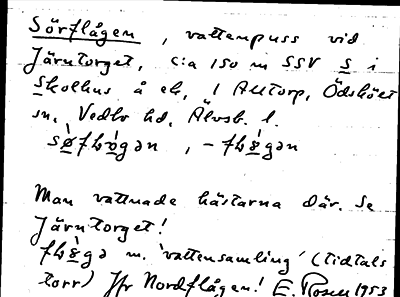 Sörflågen, vattenpuss vid
Järntorget, c:a 150 m SSV S i
Skolhus å ek, 1 Alltorp, Ödskölt
sn, Vedbo hd, Älvsb. l.
Man vattnade hästarna där. Se
Järntorget!
m. 'vattensamling' (tidtals
torr) Jfr Nordflågen! E. Rosen 1953